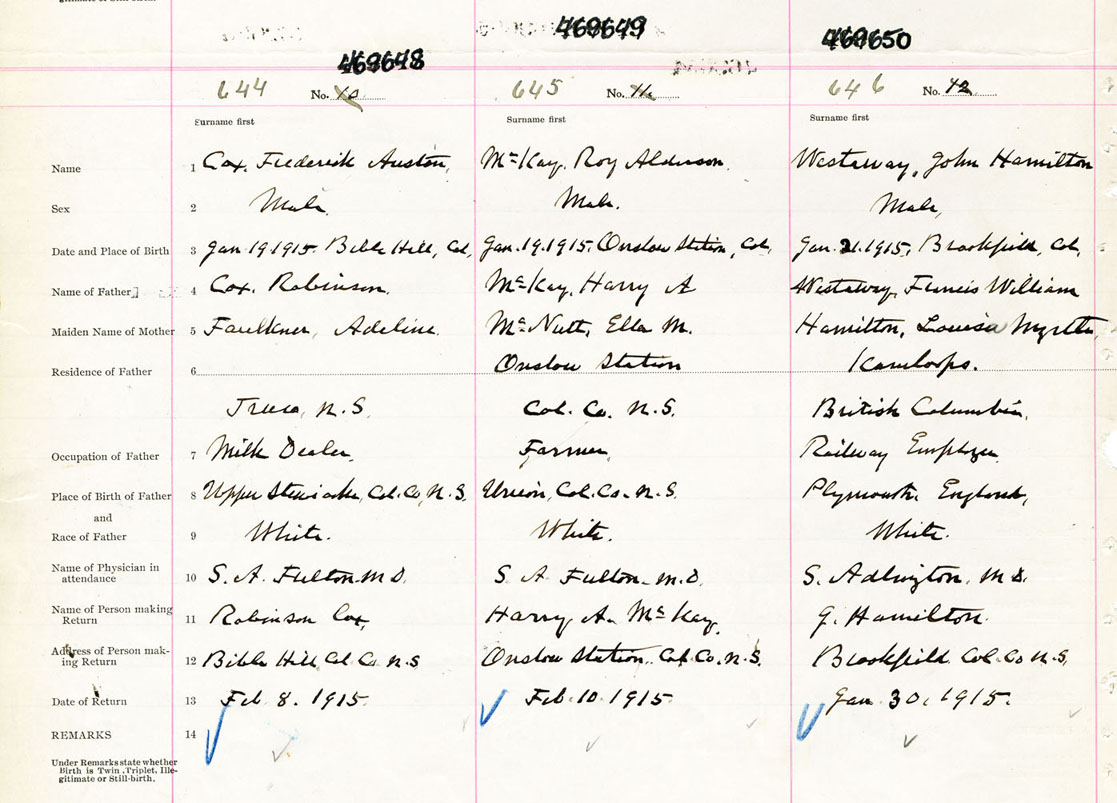 469648 469649 469650
644 No. 10 645 No. 11 646 No. 12
Surname first Surname first Surname first
Name 1 Cox, Frederick Auston, McKay, Roy Alderson. Westaway, John Hamilton
Sex 2 Male. Male. Male,
Date and Place of Birth 3 Jan 19 1915. Bible Hill, Col, Jan. 19. 1915. Onslow Station, Col, Jan. 21. 1915. Brookfield, Col,
Name of Father 4 Cox. Robinson. McKay, Harry A Westaway, Francis William
Maiden Name of Mother 5 Faulkner, Adeline. McNutt, Ella M. Hamilton, Louisa Myrtle,
Residence of Father 6 Onslow Station Kamloops.
Truro, N.S. Col. Co. N.S. British Columbia,
Occupation of Father 7 Milk Dealer, Farmer, Railway Employee
Place of Birth of Father 8 Upper Stewiacke, Col. Co, N.S. Union, Col. Co. N.S. Plymouth, England,
and
Race of Father 9 White. White. White.
Name of Physician in
attendance 10 S. A. Fulton M.D. S. A Fulton M.D. S. Adlington, M.D.
Name of Person making
Return 11 Robinson Cox, Harry A. McKay, G. Hamilton.
Address of Person mak-
ing Return 12 Bible Hill, Col. Co. N.S Onslow Station, Col. Co. N.S. Brookfield Col. Co N.S,
Date of Return 13 Feb. 8. 1915. Feb. 10 1915 Jan 30. 1915.
REMARKS 14
Under Remarks state whether
Birth is Twin, Triplet, Ille-
gitimate or Still-birth.